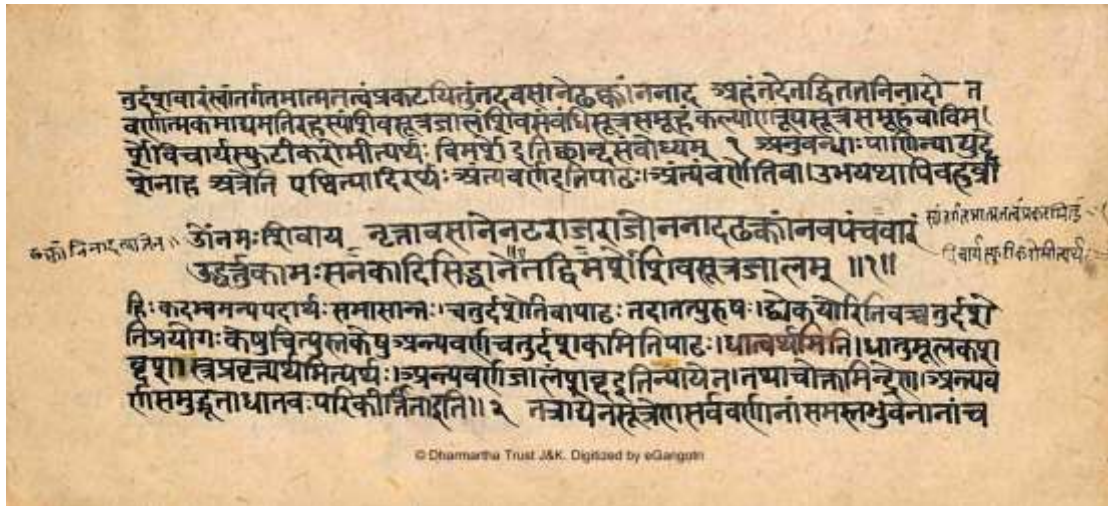 तुर्दशवारंस्वांतर्गतमात्मतत्वंप्रकटयितुंतदवसानेढक्कांननाद अहंतदेतद्विततनिनादो त
वर्णात्मकमाद्यमतिरहस्यंशिवसूत्रजालंशिवसंबंधिसूत्रसमूहंकल्याणरूपसूत्रसमूहंवाविम
र्शेविचार्यस्फुटीकरोमीत्यर्थः विमर्शे इतिछान्दसंबोध्यम् १ अनुबन्धाः पाणिन्याद्युद्दे
शेनाह अत्रेति पश्चित्यादिरर्थः अंत्यवर्णेइतिपाठः।अंत्यंवर्णेतिवा।उभयथापिबहुव्री
ओंनमःशिवाय नृत्तावसानेनटराजराजोननादढक्कांनवपंचवारं
स्वांतर्गतमात्मतत्वंप्रकटयितुं
ढक्का निनादव्याजेन
विचार्यस्फुटीकरोमीत्यर्थः
उद्धर्त्तुकामःसनकादिसिद्धानेतद्विमर्शेशिवसूत्रजालम् ॥१॥
हिः कदम्बमन्यपदार्थः समासान्तः।चतुर्दशेतिवापाठः तदातत्पुरुषः।द्व्येकयोरितिवच्चतुर्दशे
तिप्रयोगः केषुचित्पुस्तकेषुअन्त्यवर्णचतुर्दशकमितिपाठः।धात्वर्थमिति।धातुमूलकश
ब्दशास्त्रप्रवृत्त्यर्थमित्यर्थः।अन्त्यवर्णजालं इतिन्यायेन।तथाचोक्तमिन्द्रेण।अन्त्यव
र्णसमुद्भूताधातवः परिकीर्तिताइति॥२ तत्राद्येनसूत्रेणसर्ववर्णानांसमस्तभुवनानांच
© Dharmartha Trust J&K. Digitized by eGangotri